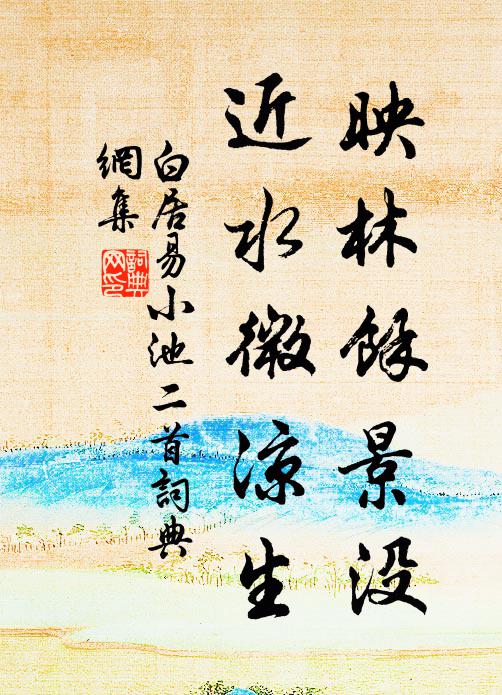 映林餘景没
近水微涼生
白居易小池二首詞典
網集
詞典网印